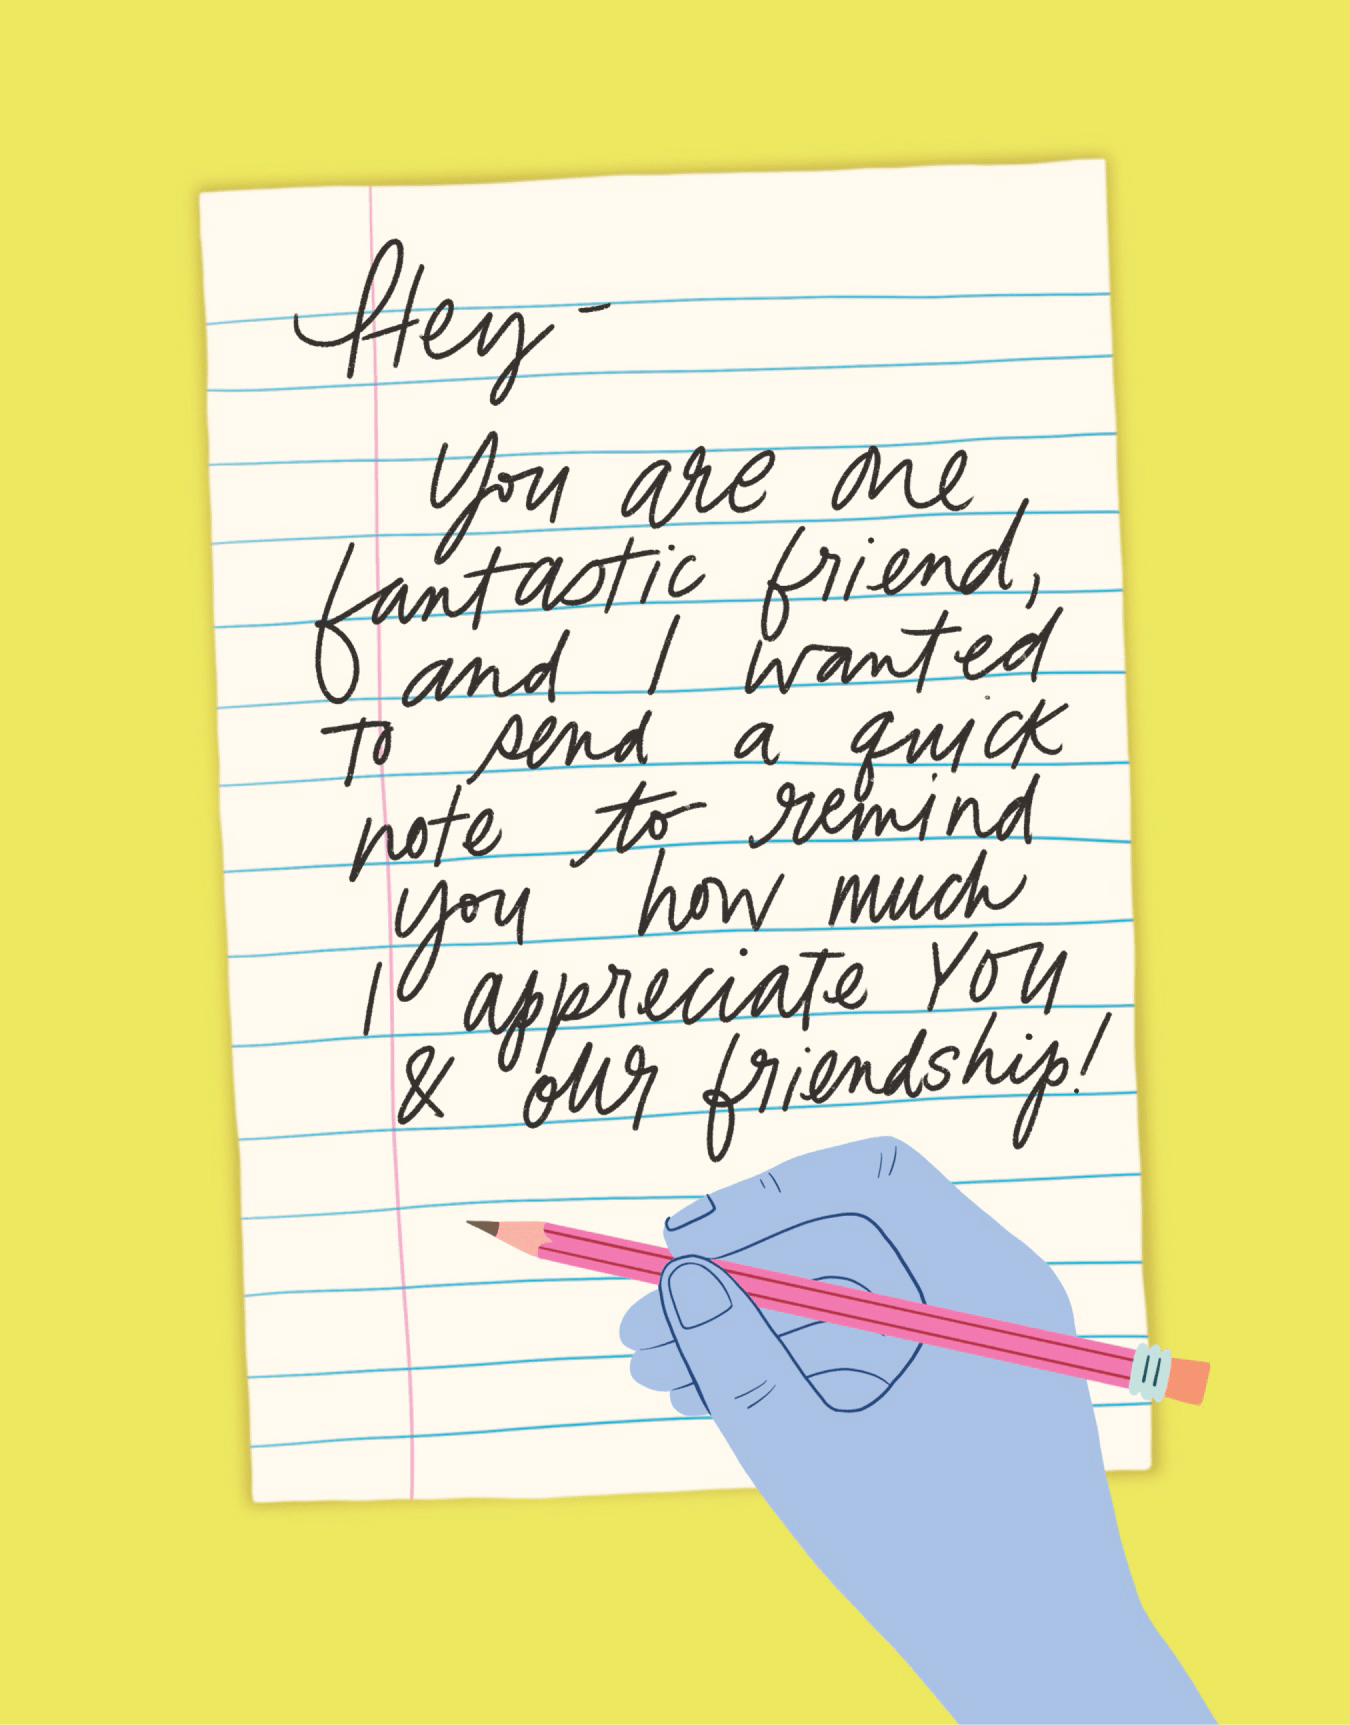 Hey -
You are one
fantastic friend,
and I wanted
to send a quick
note to remind
you how much
I appreciate you
& our friendship!